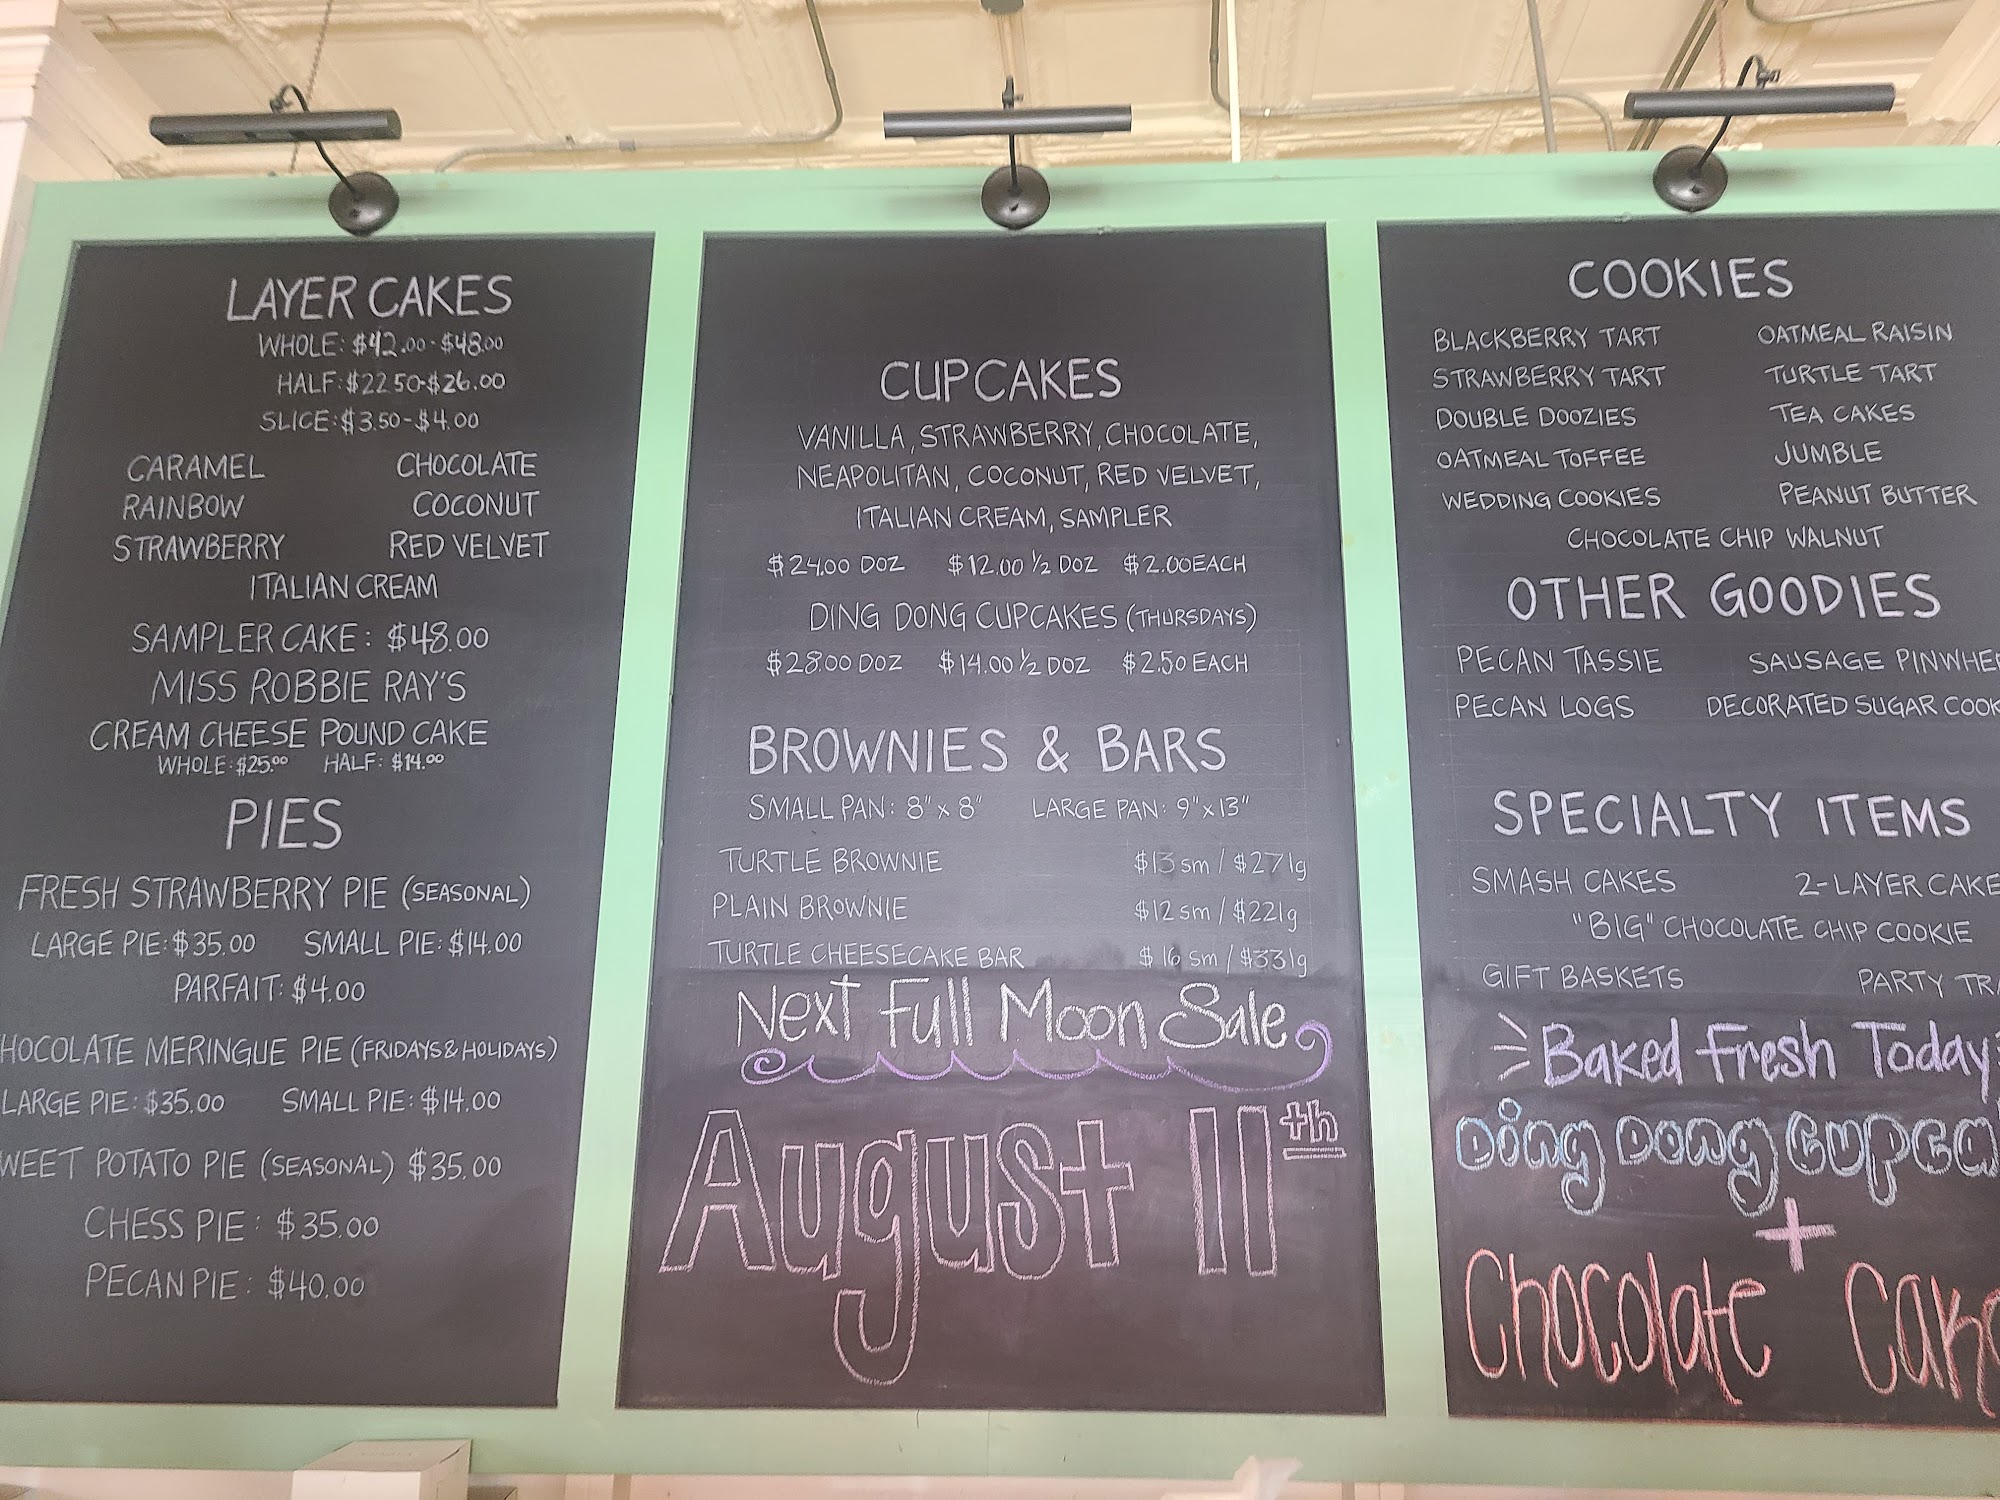 LAYER CAKES
WHOLE: $42.00-$48.00
HALF: $22.50-$26.00
SLICE: $3.50-$4.00
CARAMEL CHOCOLATE
RAINBOW COCONUT
STRAWBERRY RED VELVET
ITALIAN CREAM
SAMPLER CAKE: $48.00
MISS ROBBIE RAY'S
CREAM CHEESE POUND CAKE
WHOLE: $25.00 HALF: $14.00
PIES
FRESH STRAWBERRY PIE (SEASONAL)
LARGE PIE: $35.00 SMALL PIE: $14.00
PARFAIT: $4.00
HOCOLATE MERINGUE PIE (FRIDAYS & HOLIDAYS)
LARGE PIE: $35.00 SMALL PIE: $14.00
WEET POTATO PIE (SEASONAL) $35.00
CHESS PIE: $35.00
PECAN PIE: $40.00
CUPCAKES
VANILLA, STRAWBERRY, CHOCOLATE,
NEAPOLITAN, COCONUT, RED VELVET,
ITALIAN CREAM, SAMPLER
$24.00 DOZ $12.00 ½ DOZ $2.00 EACH
DING DONG CUPCAKES (THURSDAYS)
$28.00 DOZ $14.00 ½ DOZ $2.50 EACH
BROWNIES & BARS
SMALL PAN: 8" x 8" LARGE PAN: 9" x 13"
TURTLE BROWNIE $13 sm / $27 lg
PLAIN BROWNIE $12 sm / $22 lg
TURTLE CHEESECAKE BAR $16 sm / $33 lg
Next Full Moon Sale
August 11th
COOKIES
BLACKBERRY TART OATMEAL RAISIN
STRAWBERRY TART TURTLE TART
DOUBLE DOOZIES TEA CAKES
OATMEAL TOFFEE JUMBLE
WEDDING COOKIES PEANUT BUTTER
CHOCOLATE CHIP WALNUT
OTHER GOODIES
PECAN TASSIE SAUSAGE PINWHE
PECAN LOGS DECORATED SUGAR COOK
SPECIALTY ITEMS
SMASH CAKES 2-LAYER CAKE
"BIG" CHOCOLATE CHIP COOKIE
GIFT BASKETS PARTY TRA
Baked Fresh Today
Ding Dong Cupca
+
Chocolate Cake